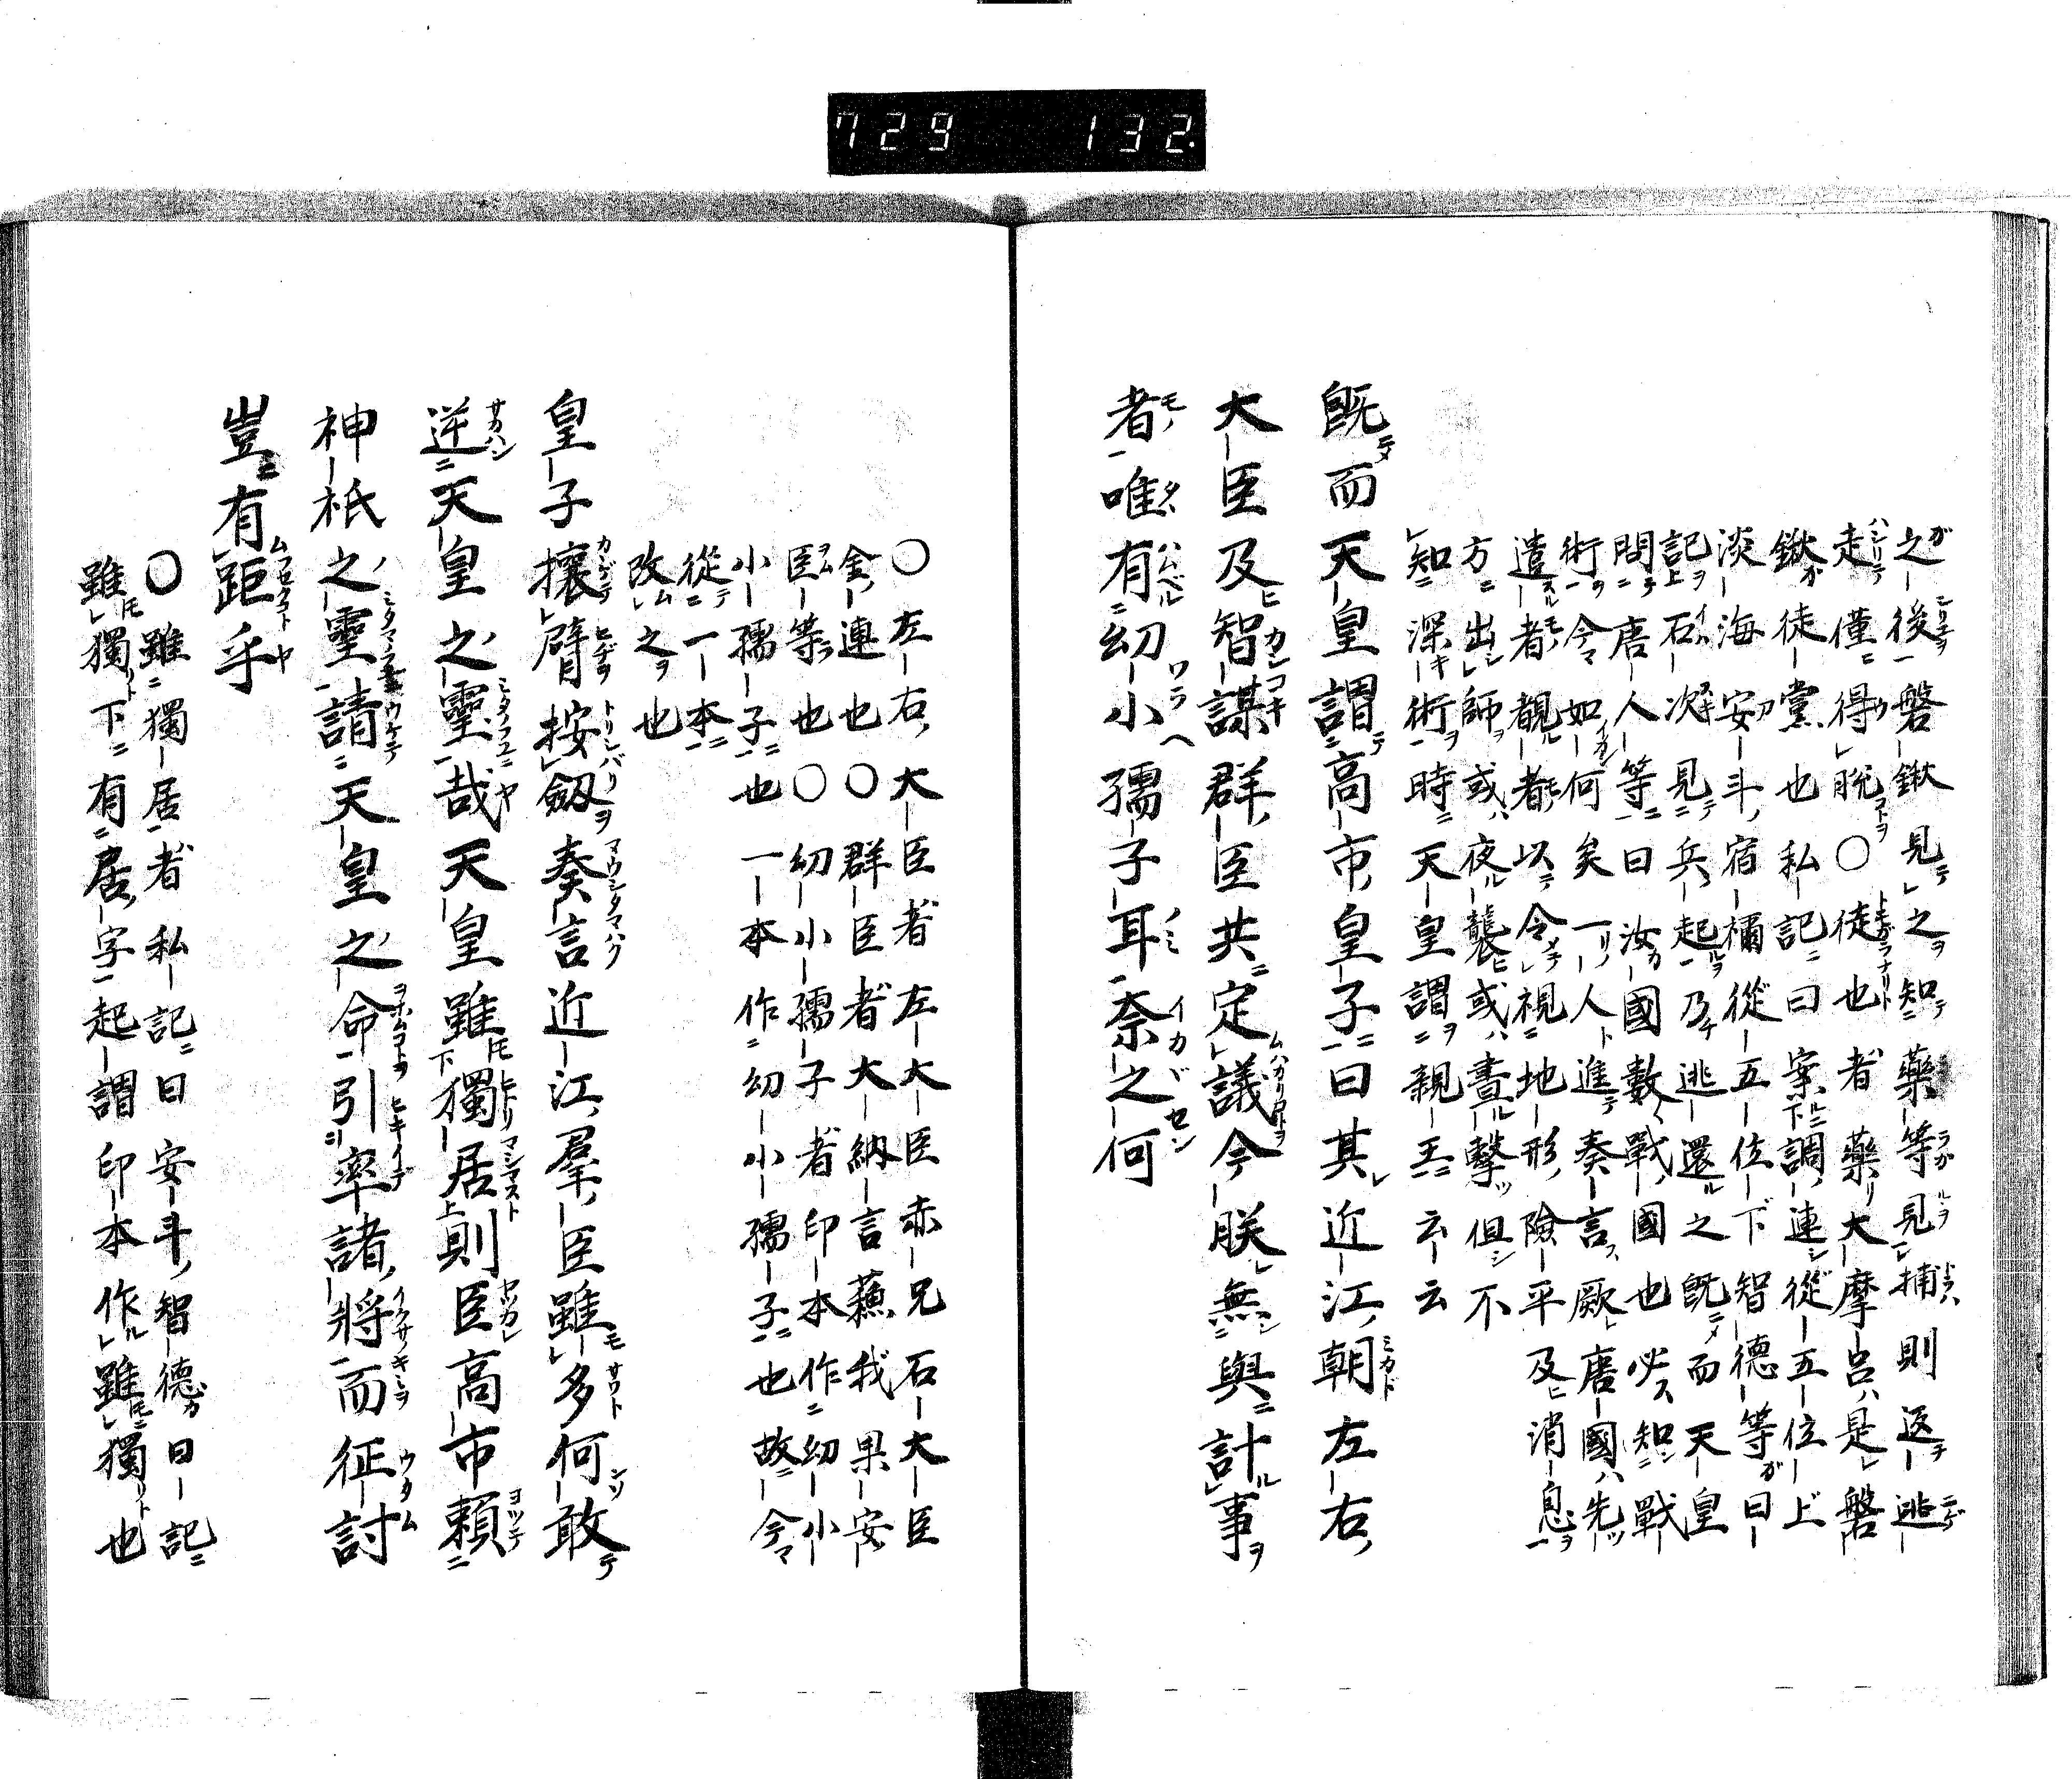 729 132.
之後磐鍬見之知藥等見捕則返逃
走僅得脫〇徒也者藥大摩呂是磐
鍬徒黨也私記曰案調連從五位上
淡海安斗宿禰從五位下智德等曰
記石次見兵起乃逃還之既而天皇
問唐人等曰汝國數戰國也必知戰
術今如何矣一人進奏言厥唐國先
遣者覩者以令視地形險平及消息
方出師或夜襲或晝擊但不
知深術時天皇謂親王云云
既而天皇謂高市皇子曰其近江朝左右
大臣及智謀群臣共定議今朕無與計事
者唯有幼小孺子耳奈之何
〇左右大臣者左大臣赤兄石大臣
金連也〇群臣者大納言蘓我果安
臣等也〇幼小孺子者印本作幼小
小孺子也一本作幼小孺子也故今
從一本
改之也
皇子攘臂按劔奏言近江羣臣雖多何敢
逆天皇之靈哉天皇雖獨居則臣高市賴
神祇之靈請天皇之命引率諸將而征討
豈有距乎
〇雖獨居者私記曰安斗智德曰記
雖獨下有居字起謂印本作雖獨也